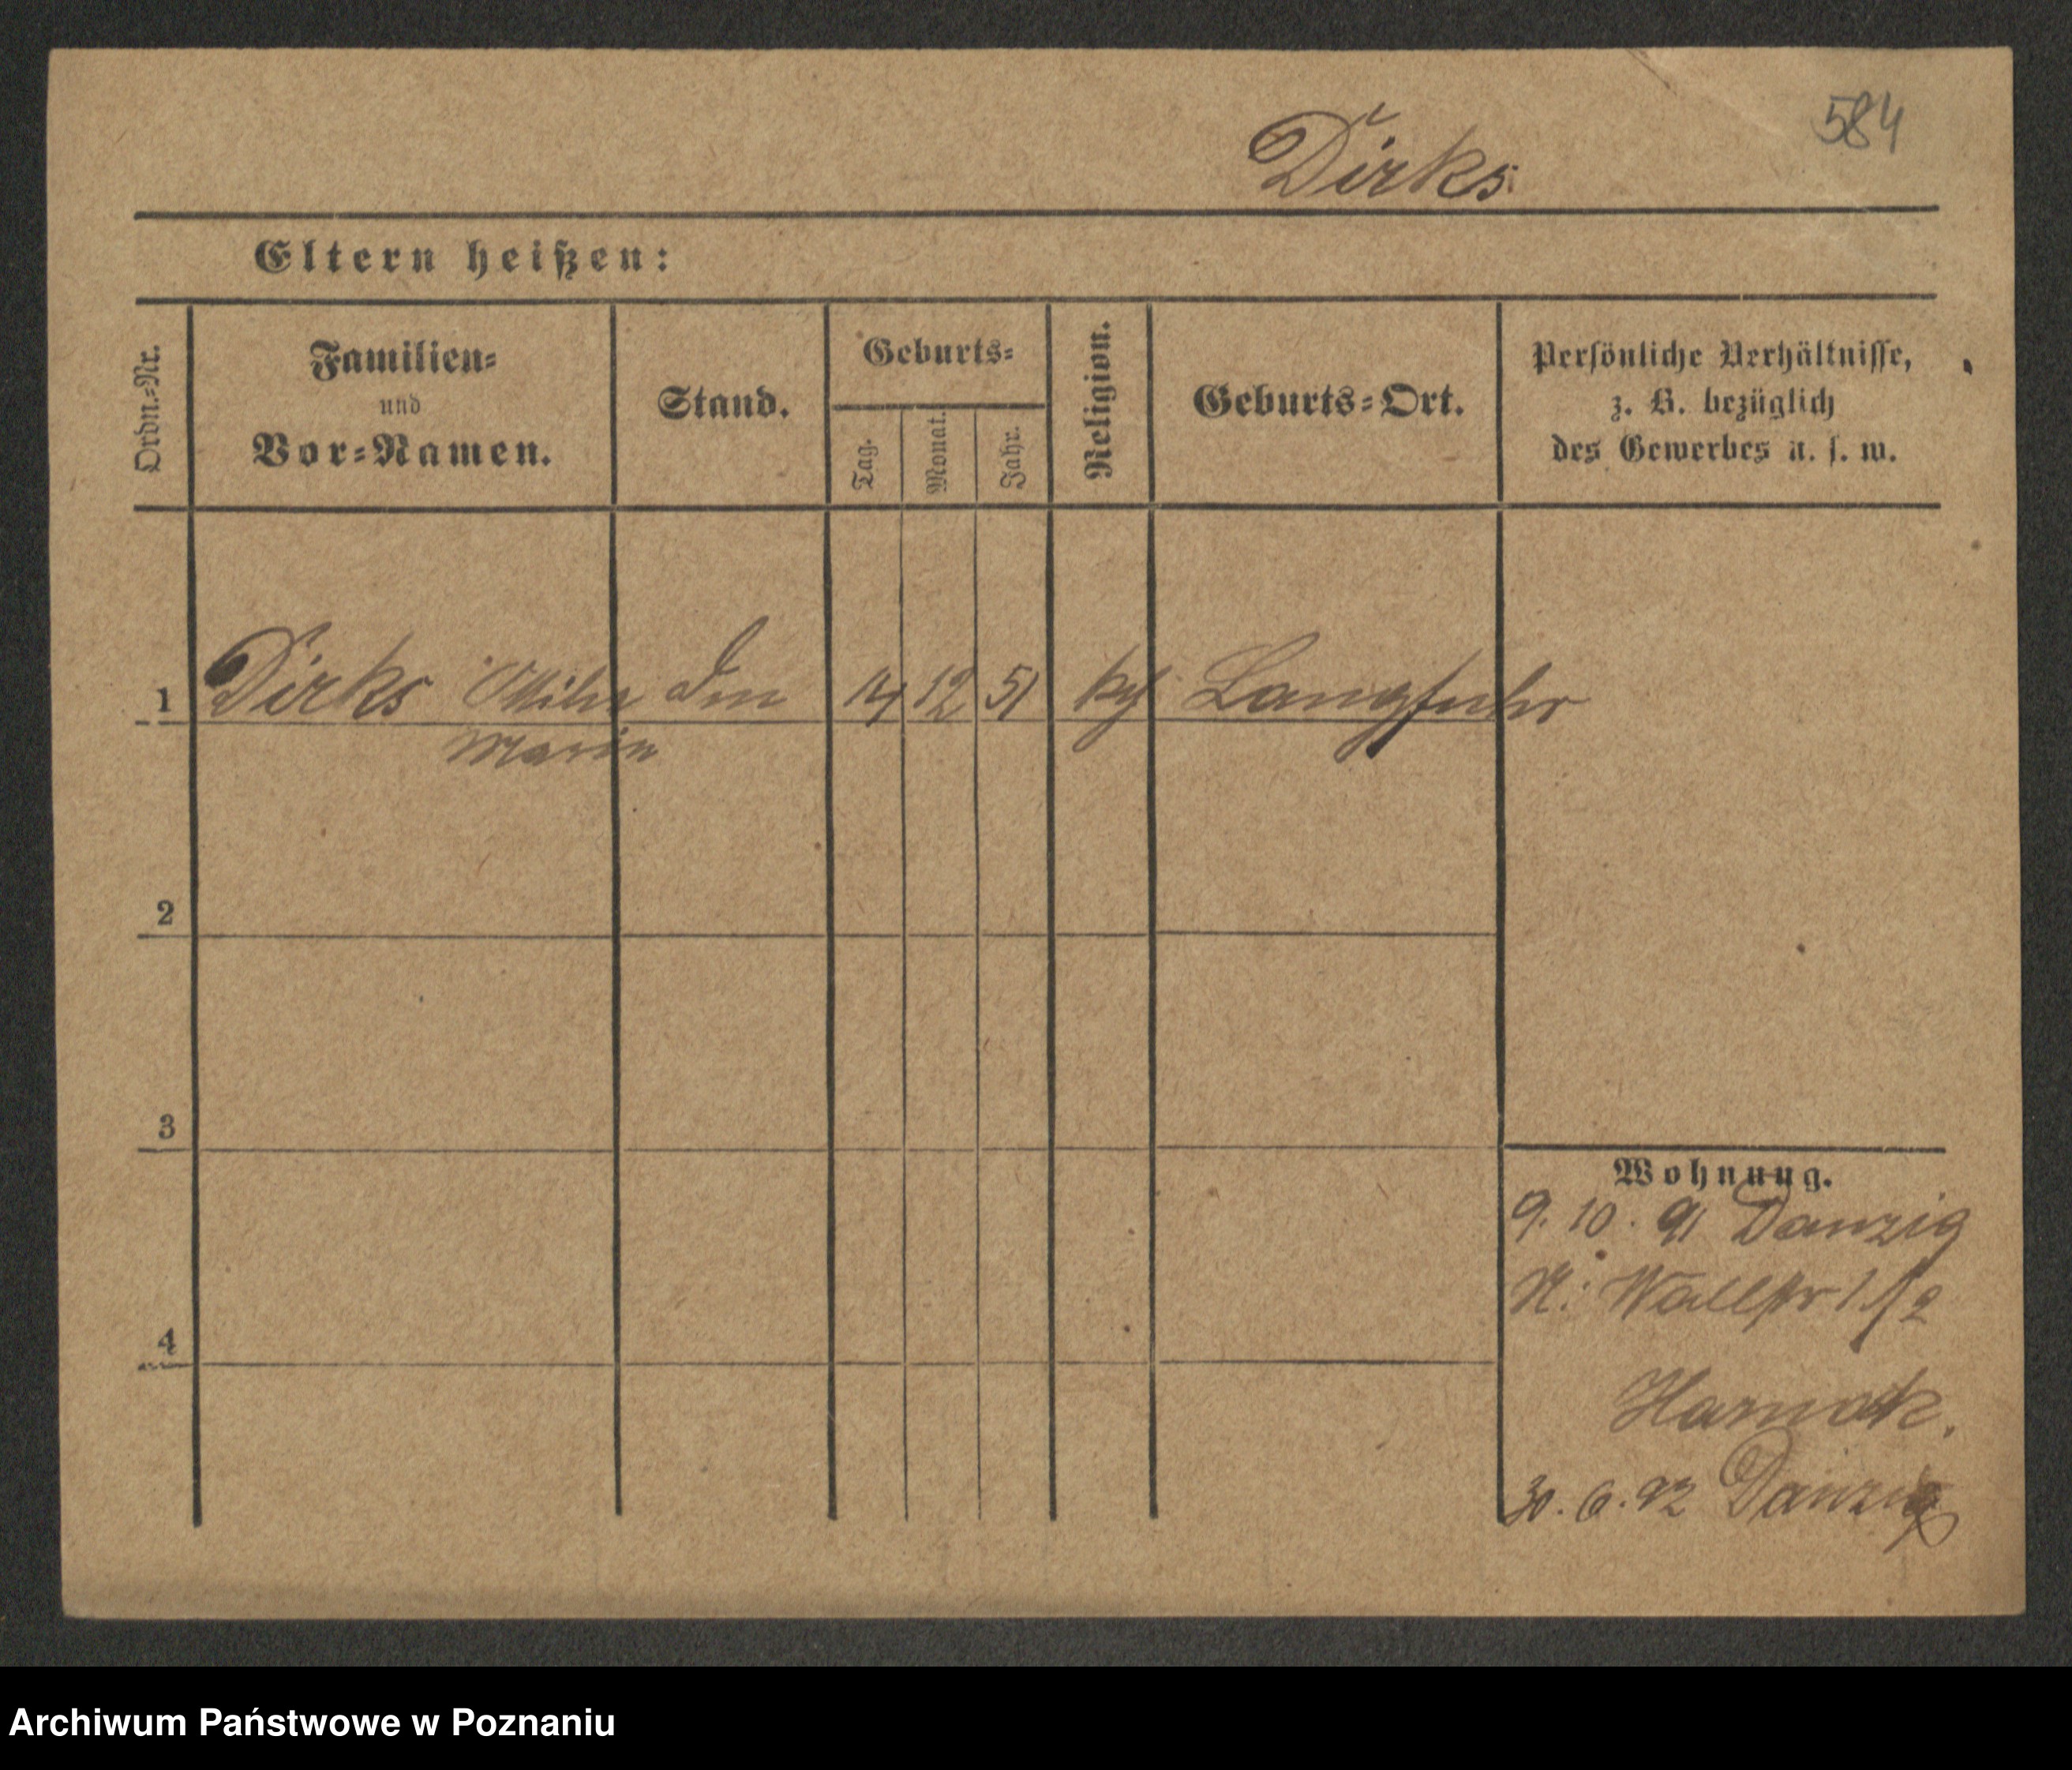 584
Dirks
Eltern heißen:
Ordn.-Nr.
Familien-
und
Vor-Namen.
Stand.
Geburts-
Tag.
Monat.
Jahr.
Religion.
Geburts-Ort.
Persönliche Verhältnisse,
z. B. bezüglich
des Gewerbes u. s. w.
1 Dirks 14 12 51 Langfuhr
2
3
4
Wohnung.
9. 10. 91 Danzig
Wallstr
30. 6. 92 Danzig
Archiwum Państwowe w Poznaniu